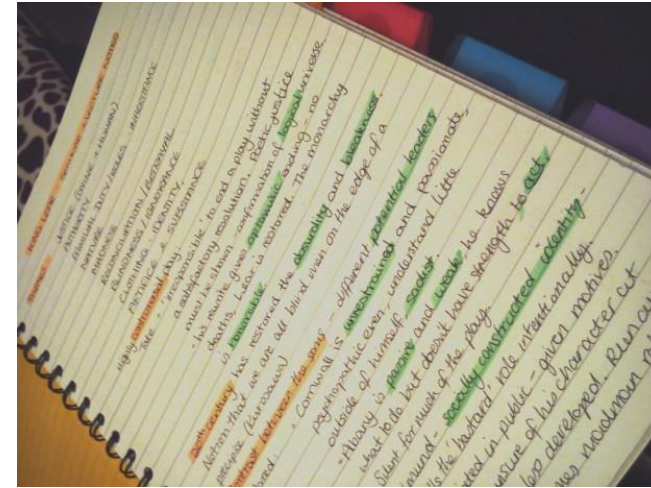 KING LEAR - LECTURE NOTES
THEMES
JUSTICE (DIVINE + HUMAN)
AUTHORITY
FAMILIAL DUTY/ROLES INHERITANCE
NATURE
MADNESS
RECONCILIATION/BETRAYAL
BLINDNESS/IGNORANCE
CLOTHING - IDENTITY,
ARTIFICE & SUBSTANCE
Highly customised play.
Tate - 'irresponsible' to end a play without
a satisfactory resolution. Poetic justice
must be shown - confirmation of logical universe.
- his rewrite gives optimistic ending - no
deaths, Lear is restored. The monarchy
is honourable.
20th century has restored the absurdity and bleakness.
Notion that we are all blind even on the edge of a
precipice (Kurosawa)
contrast between the sons - different potential leaders
- Cornwall is unrestrained and passionate,
psychopathic even, understand little
outside of himself. sadist.
- Albany is passive and weak, he knows
what to do but doesn't have strength to act.
Silent for much of the play.
mund - socially constructed identity -
the 'bastard' role intentionally.
in public - given motives.
of his character cut
less developed.